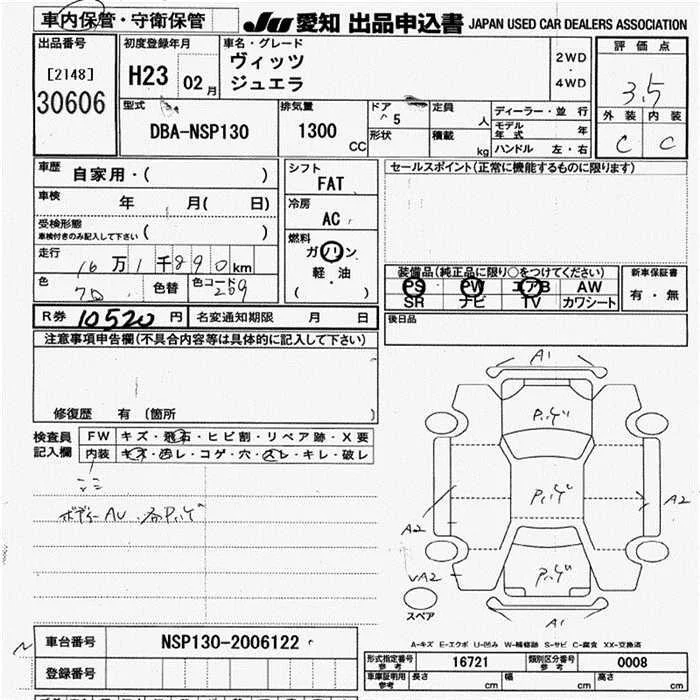 車内保管・守衛保管
JU 愛知 出品申込書 JAPAN USED CAR DEALERS ASSOCIATION
出品番号
[2148]
30606
初度登録年月
H23 02月
車名・グレード
ヴィッツ
ジュエラ
2WD
・
4WD
評価点
3.5
外装 内装
C C
型式
DBA-NSP130
排気量
1300
CC
ドア
5
形状
定員
人
積載
kg
ディーラー・並行
モデル年式 年
ハンドル 左・右
車歴
自家用・( )
車検
年 月( 日)
受検形態
車検付きのみ記入して下さい ( )
走行
16万1千890km
色
色替
色コード 209
シフト
FAT
冷房
AC
燃料
ガソリン
軽・油
( )
セールスポイント(正常に機能するものに限ります)
装備品(純正品に限り○をつけてください)
PS PW エアB AW
SR ナビ TV カワシート
新車保証書
有・無
後日品
R券 10520円 名変通知期限 月 日
注意事項申告欄(不具合内容等は具体的に記入して下さい)
修復歴 有 〔箇所 〕
検査員
記入欄
FW キズ・飛石・ヒビ割・リペア跡・X要
内装 キズ・汚レ・コゲ・穴・スレ・キレ・破レ
ボディーAU・各Pハゲ
A1
Pハゲ
Pハゲ
Pハゲ
A2
A2
VA2
A1
スペア
A-キズ E-エクボ U-凹み W-補修跡 S-サビ C-腐食 XX-交換済
車台番号 NSP130-2006122
登録番号
形式指定番号 参考 16721 類別区分番号 参考 0008
車庫証明用 参考 長さ cm 幅 cm 高さ cm